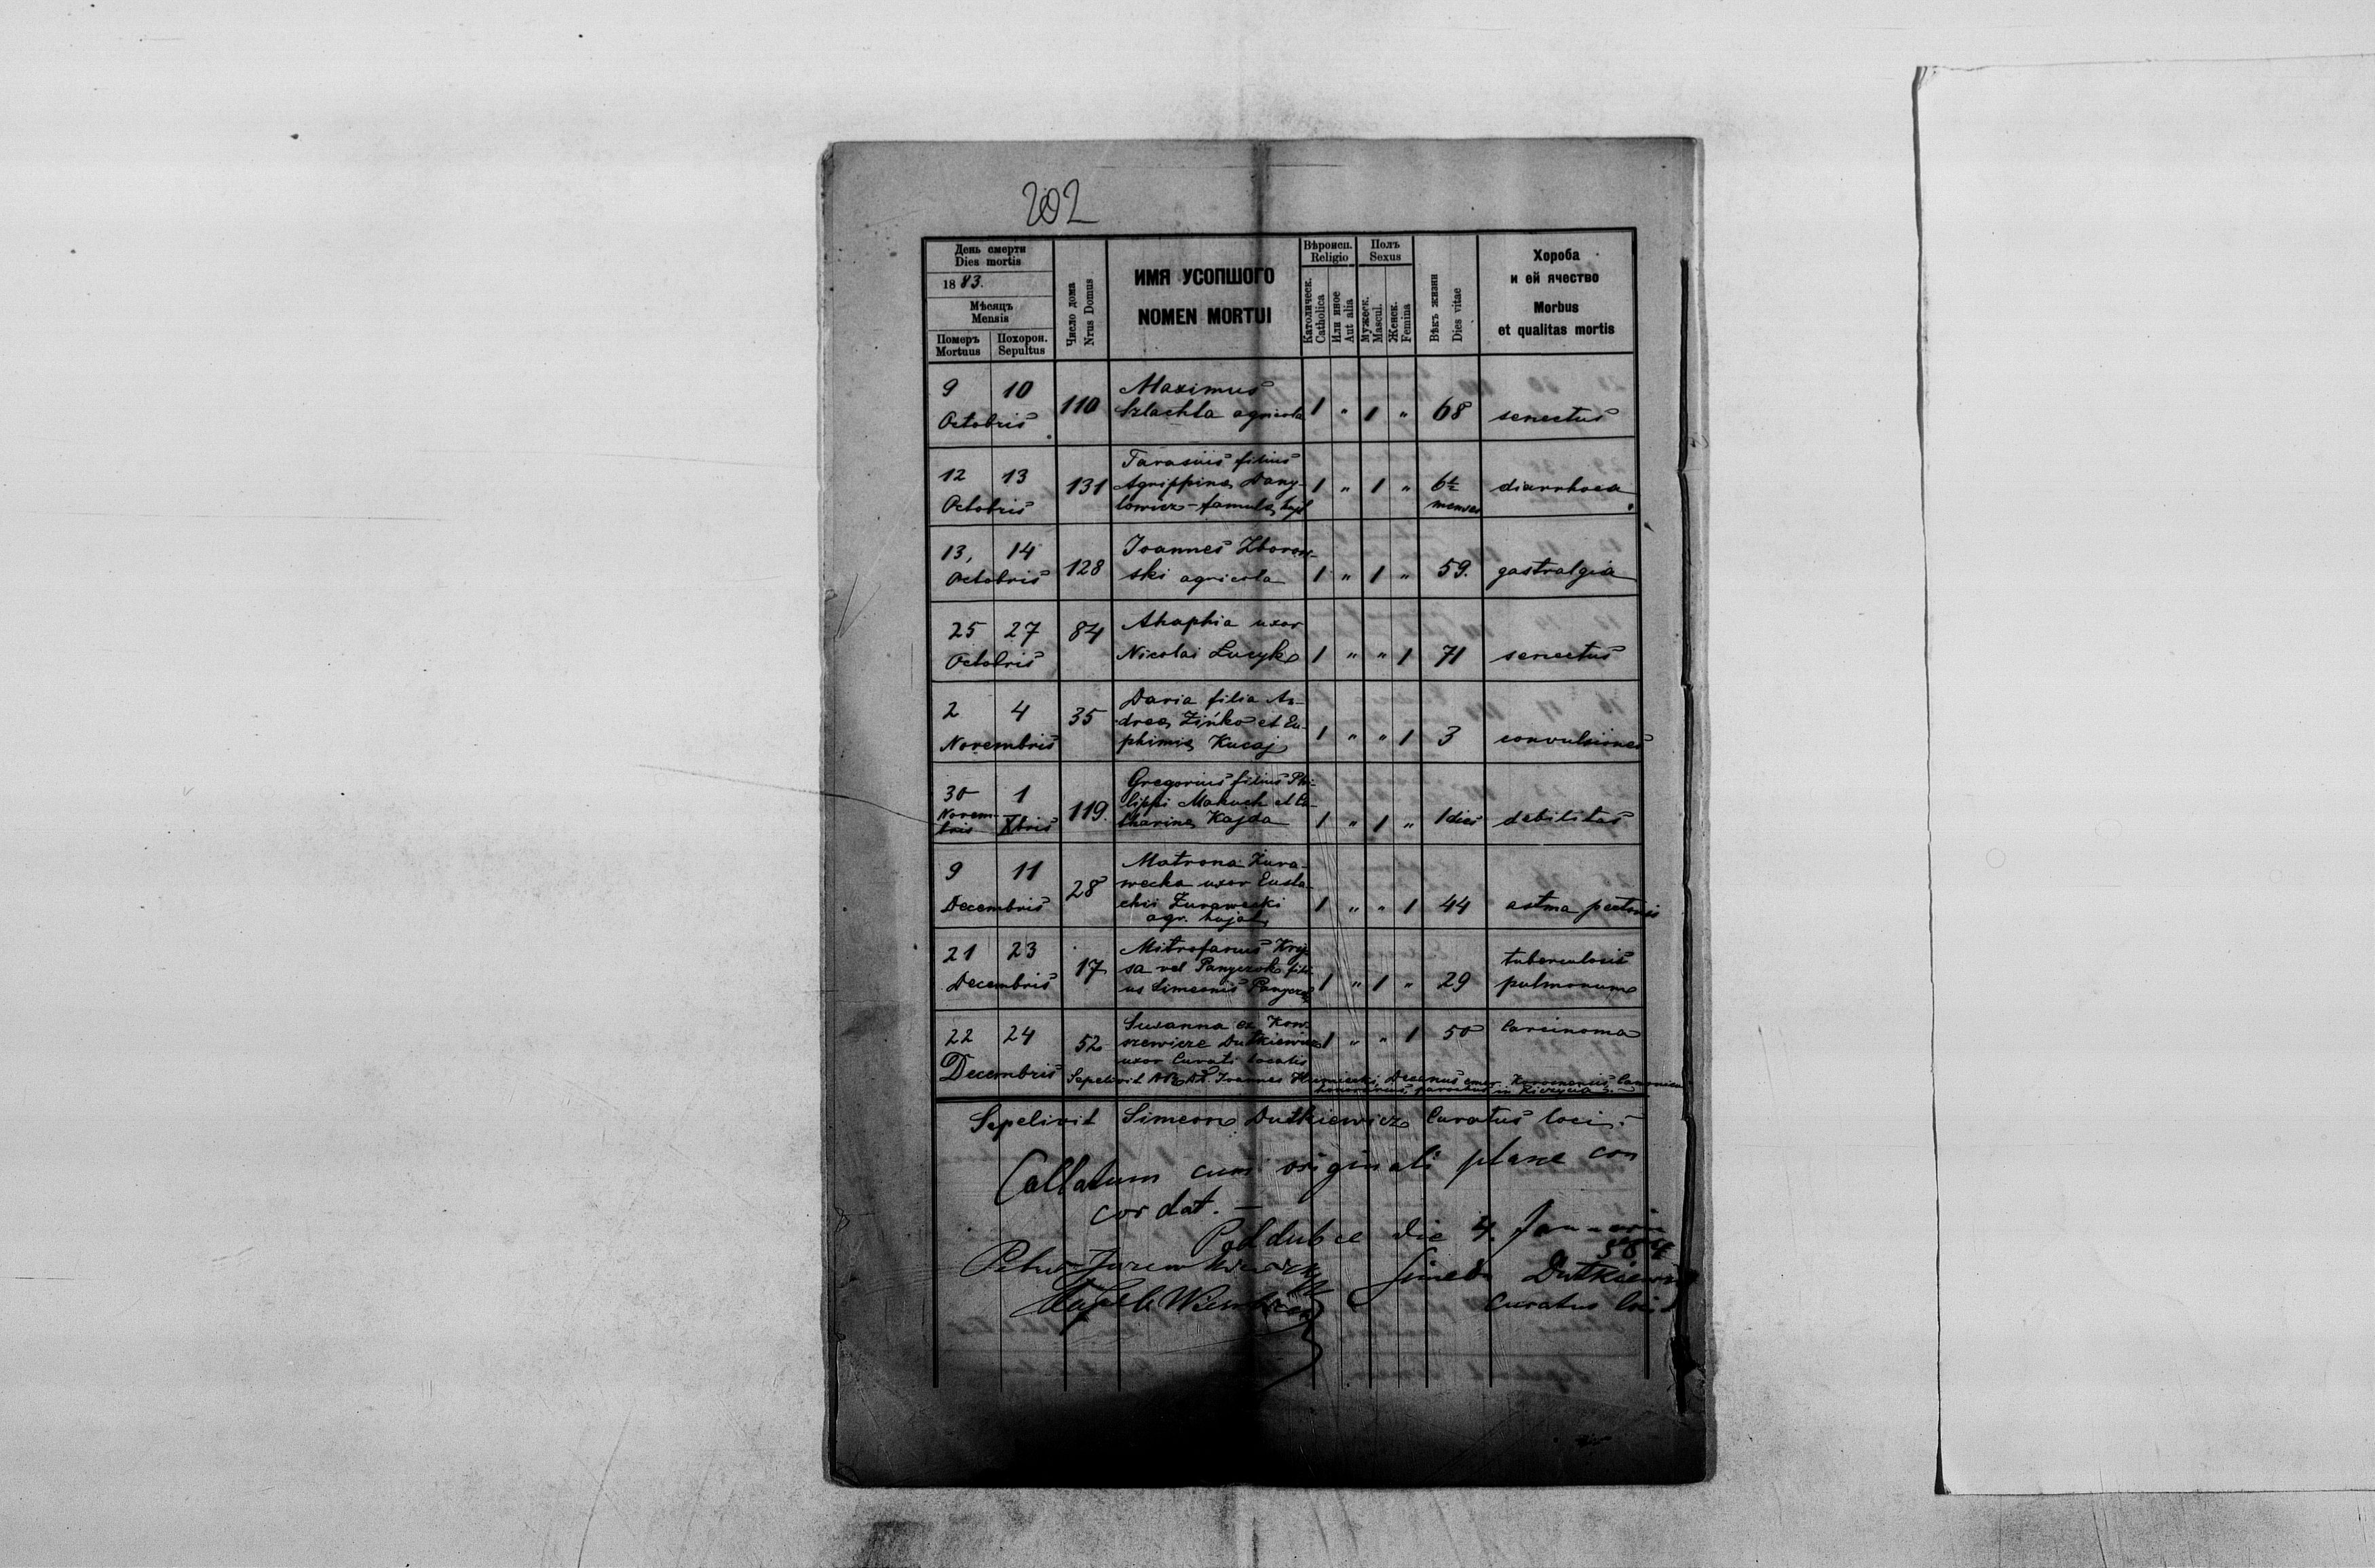 202
День смерти
Dies mortis
1883.
Мѣсяцъ
Mensis
Померъ Похорон.
Mortuus Sepultus
Число дома
Nrus Domus
ИМЯ УСОПШОГО
NOMEN MORTUI
Вѣроисп.
Religio
Католическ.
Catholica
Или иное
Aut alia
Полъ
Sexus
Мужеск.
Mascul.
Женск.
Femina
Вѣкъ жизни
Dies vitae
Хороба
и ей ячество
Morbus
et qualitas mortis
9 10 Octobris 110
Maximus
Szlachta agricola
1 " 1 " 68 senectus
12 13 Octobris 131
Tarasius filius
Agrippinae Dany-
lowicz - famulae hujt
1 " 1 " 6 menses diarrhoea
13, 14 Octobris 128
Joannes Zborow-
ski agricola
1 " 1 " 59. gastralgia
25 27 Octobris 84
Ahaphia uxor
Nicolai Lucyk
1 " " 1 71 senectus
2 4 Novembris 35
Daria filia An-
dreae Zińko et Eu-
phimiae Kucaj
1 " " 1 3 convulsiones
30 Novem-
bris 1 Xbris 119.
Gregorius filius Phi-
lippi Makuch et Ca-
tharinae Kajda
1 " 1 " 1 dies debilitas
9 11 Decembris 28
Matrona Żura-
wecka uxor Eusta-
chii Żurawecki
agr. hujat
1 " " 1 44 astma pectoris
21 23 Decembris 17
Mitrofanus Kry-
sa vel Panyczok fili-
us Simeonis
1 " 1 " 29 tuberculosis
pulmonum
22 24 Decembris 52
Susanna ex
Dutkiewicz
uxor Curati localis
1 " " 1 50 Carcinoma
Sepelivit Joannes Decanus emer.
honorarius, parochus in
Sepelivit Simeon Dutkiewicz Curatus loci.-
Collatum cum originali plane con
cordat. -
Poddubce die 4. Januarii
884
Petrus
Simeon Dutkiewicz
Curatus loci